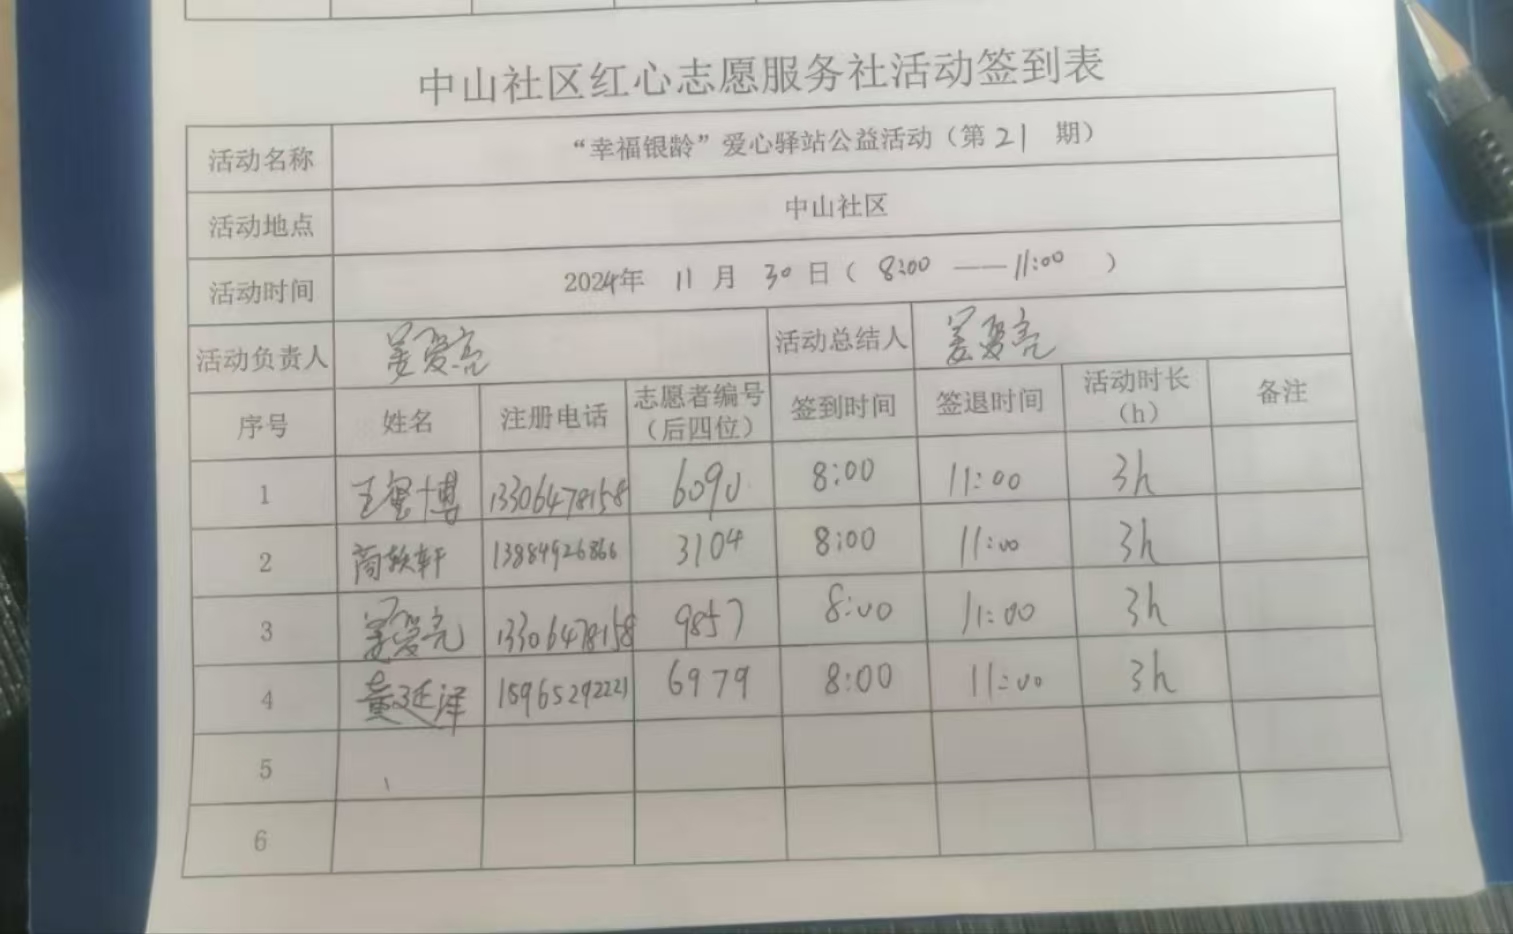 中山社区红心志愿服务社活动签到表
活动名称 “幸福银龄”爱心驿站公益活动（第 21 期）
活动地点 中山社区
活动时间 2024年 11 月 30 日（ 8:00 ——11:00 ）
活动负责人 姜爱亮 活动总结人 姜爱亮
序号 姓名 注册电话 志愿者编号（后四位） 签到时间 签退时间 活动时长（h） 备注
1 王玺博 13306478158 6090 8:00 11:00 3h
2 商 轩 13884926866 3104 8:00 11:00 3h
3 姜爱亮 13306478158 9857 8:00 11:00 3h
4 黄延泽 15965292221 6979 8:00 11:00 3h
5
6